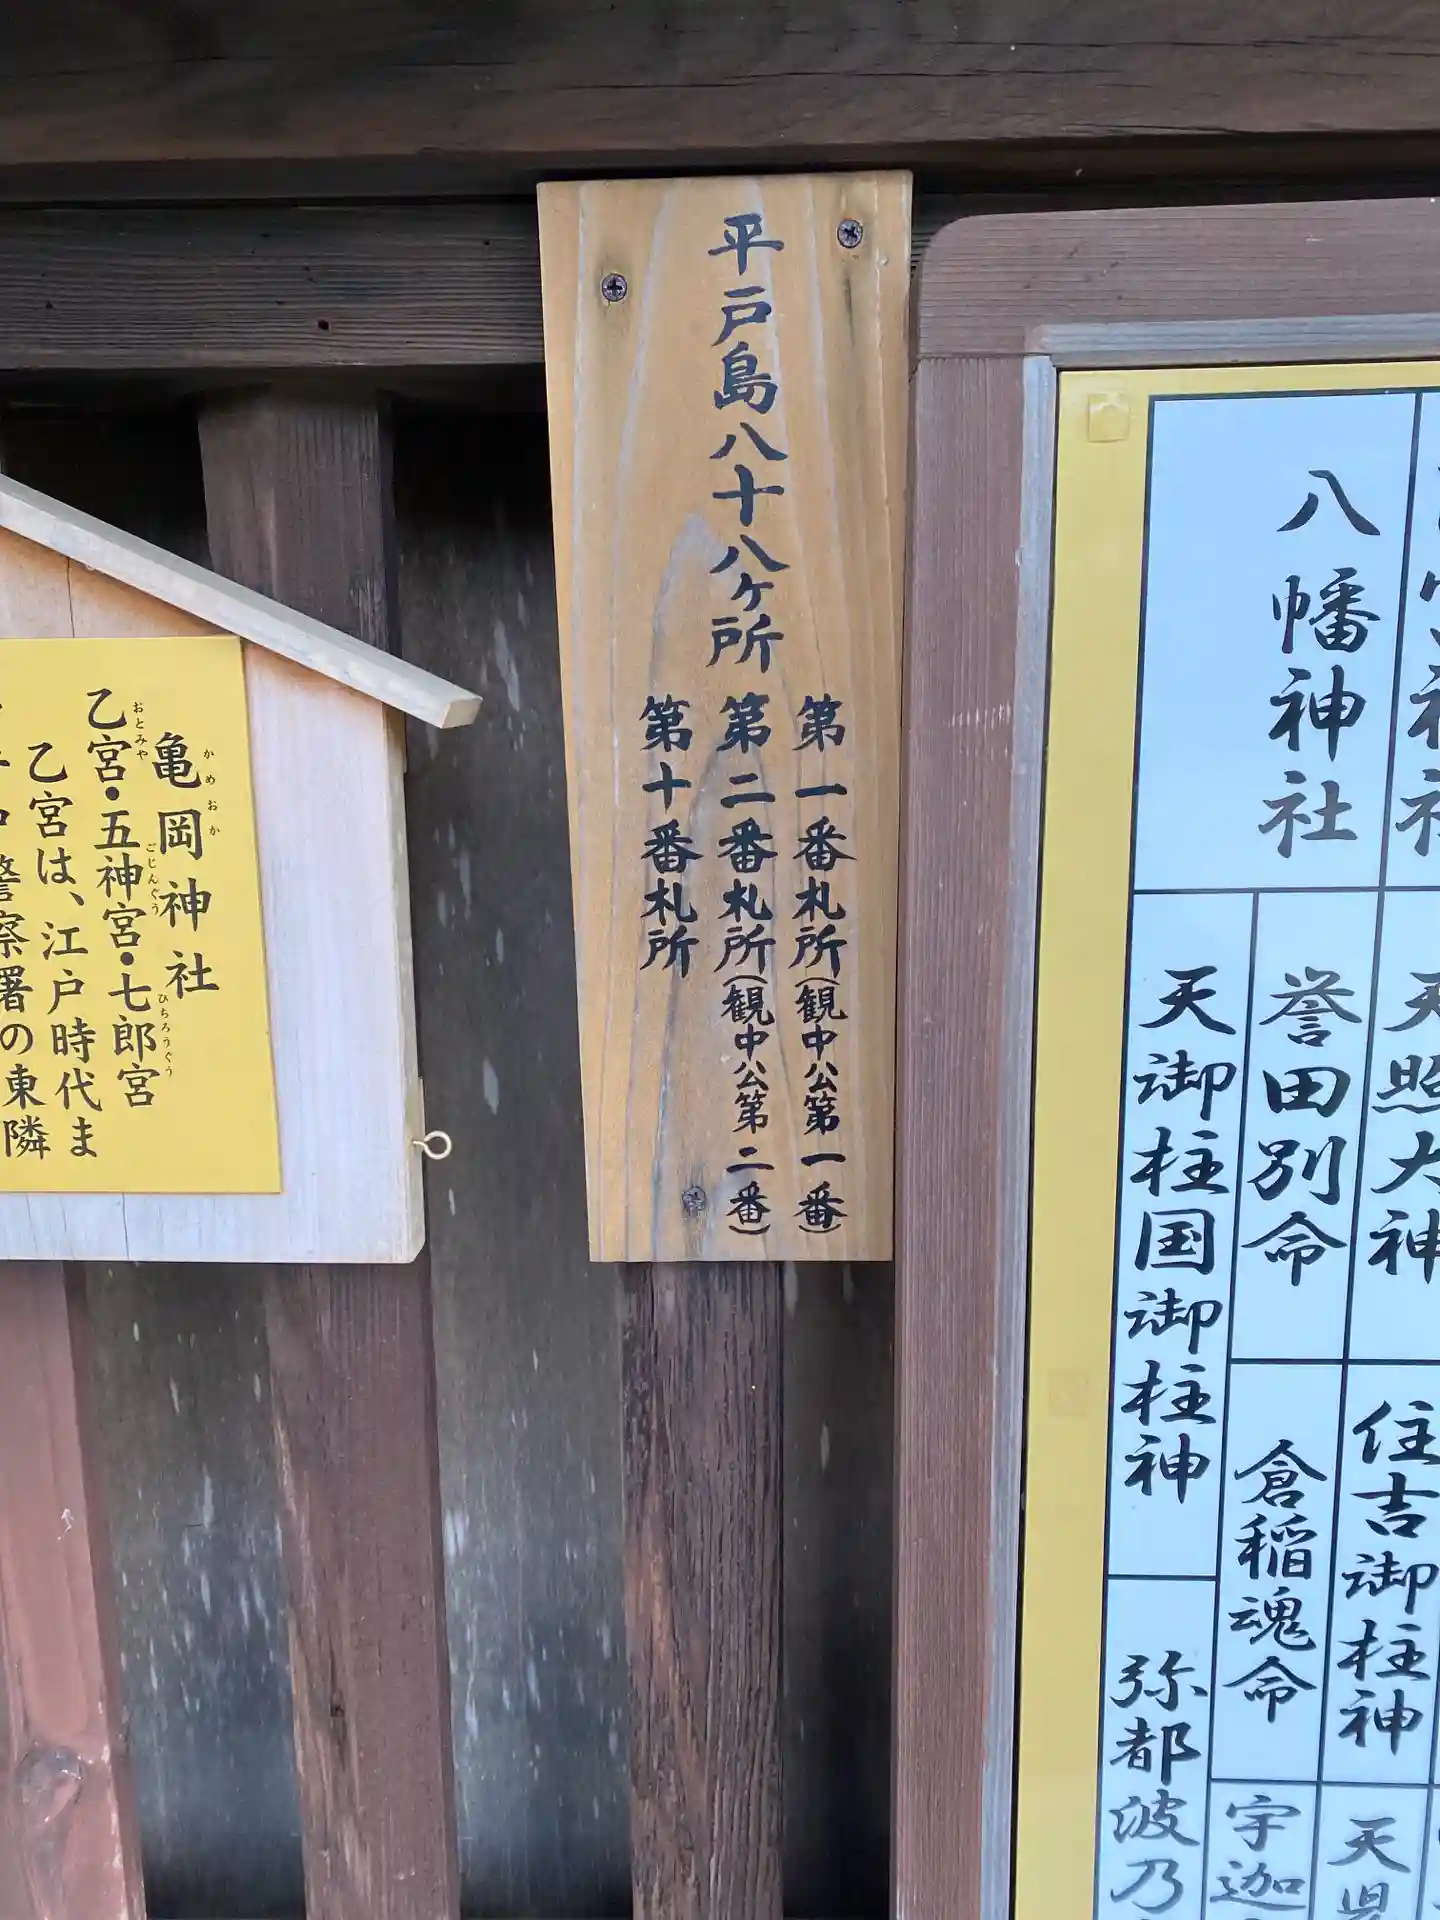 平戸島八十八ヶ所
第一番札所(観中公第一番)
第二番札所(観中公第二番)
第十番札所
亀岡神社
かめおか
乙宮・五神宮・七郎宮
おとみや
ごじんぐう
ひちろうぐう
乙宮は、江戸時代ま
警察署の東隣
八幡神社
天照大神
誉田別命
天御柱国御柱神
住吉御柱神
倉稲魂命
弥都波乃
宇迦